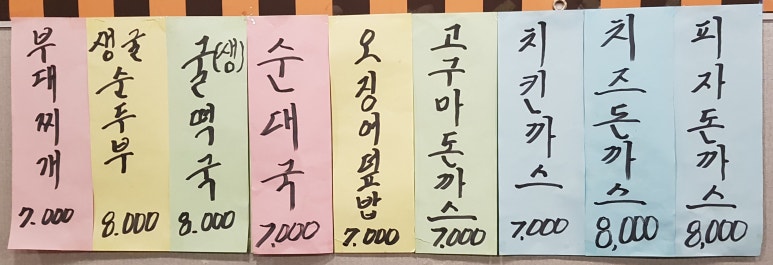 부대찌개
7.000
생굴순두부
8.000
굴(생)떡국
8.000
순대국
7,000
오징어덮밥
7.000
고구마돈까스
7,000
치킨까스
7,000
치즈돈까스
8,000
피자돈까스
8,000